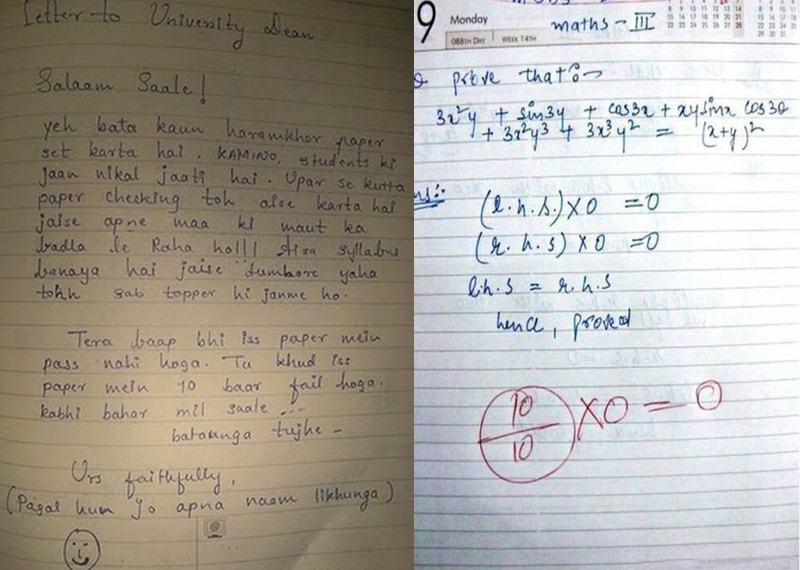 Letter to University Dean
Salaam Saale!
yeh bata kaun haramkhor paper
set karta hai. KAMINO, students ki
jaan nikal jaati hai. Upar se kutta
paper checking toh aise karta hai
jaise apne maa ki maut ka
badla le Raha ho!!! Aisa syllabus
banaya hai jaise tumhare yaha
tohh sab topper hi janme ho.
Tera baap bhi iss paper mein
pass nahi hoga. Tu khud iss
paper mein 10 baar fail hoga.
kabhi bahar mil saale ---
bataunga tujhe -
Urs faithfully,
(Pagal hum jo apna naam likhunga)
9 Monday
088TH DAY WEEK 14TH
maths - III
Q prove that :-
3x²y + sin3y + cos3x + xysinx cos3θ
+ 3x²y³ + 3x³y² = (x+y)²
ns:-
(l.h.s.) X 0 = 0
(r.h.s) X 0 = 0
l.h.s = r.h.s
hence, proved
10/10 X 0 = 0